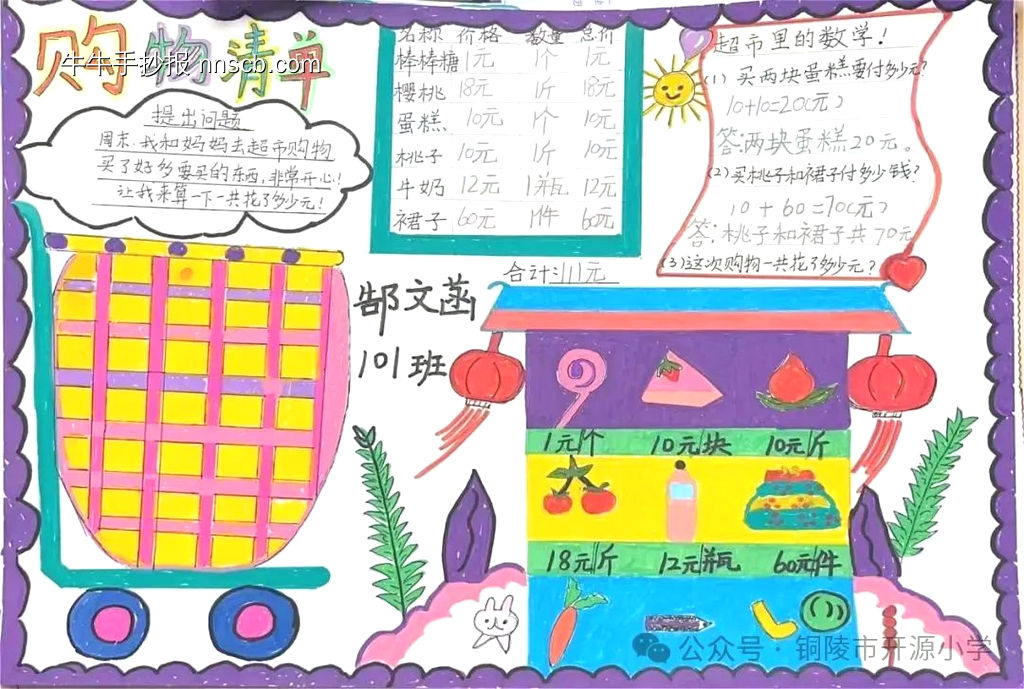 购物清单
牛牛手抄报 nnscb.com
提出问题
周末,我和妈妈去超市购物
买了好多要买的东西,非常开心!
让我来算一下一共花了多少元!
名称 价格 数量 总价
棒棒糖 1元 1个 1元
樱桃 18元 1斤 18元
蛋糕 10元 1个 10元
桃子 10元 1斤 10元
牛奶 12元 1瓶 12元
裙子 60元 1件 60元
合计:111元
超市里的数学!
(1)买两块蛋糕要付多少元?
10+10=20(元)
答:两块蛋糕20元。
(2)买桃子和裙子付多少钱?
10+60=70(元)
答:桃子和裙子共70元
(3)这次购物一共花了多少元?
郜文菡
101班
1元/个 10元/块 10元/斤
18元/斤 12元/瓶 60元/件
公众号·铜陵市开源小学